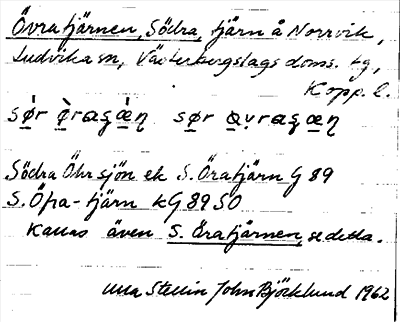 Övratjärnen, Södra, tjärn å Norrvik,
Ludvika sn, Västerbergslags doms. tg,
Kopp. l.
Södra Öhrsjön ek S. Öratjärn G 89
S. Öfra-tjärn kG 89 SO
Kallas även S. Öratjärnen, se detta.
Ulla Stellin John Björklund 1962